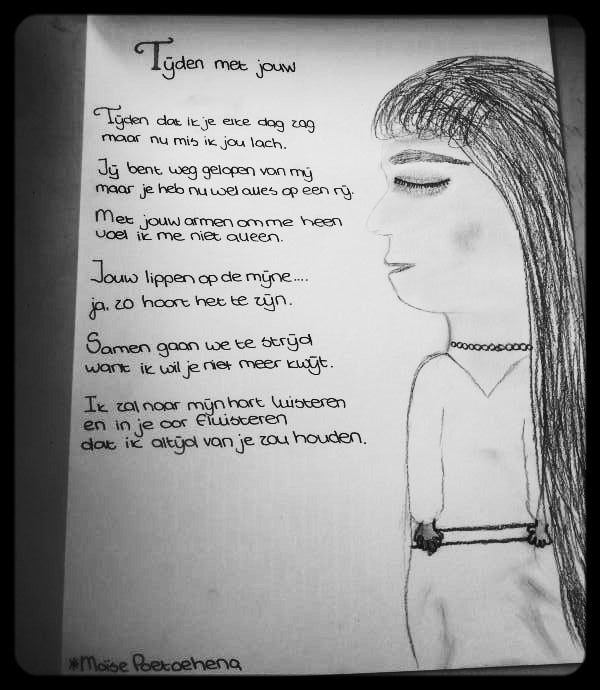 Tijden met jouw
Tijden dat ik je elke dag zag
maar nu mis ik jou lach.
Jij bent weg gelopen van mij
maar je heb nu wel alles op een rij.
Met jouw armen om me heen
voel ik me niet alleen.
Jouw lippen op de mijne....
ja, zo hoort het te zijn.
Samen gaan we te strijd
want ik wil je niet meer kwijt.
Ik zal naar mijn hart luisteren
en in je oor fluisteren
dat ik altijd van je zou houden.
*Moïse Poetoehena